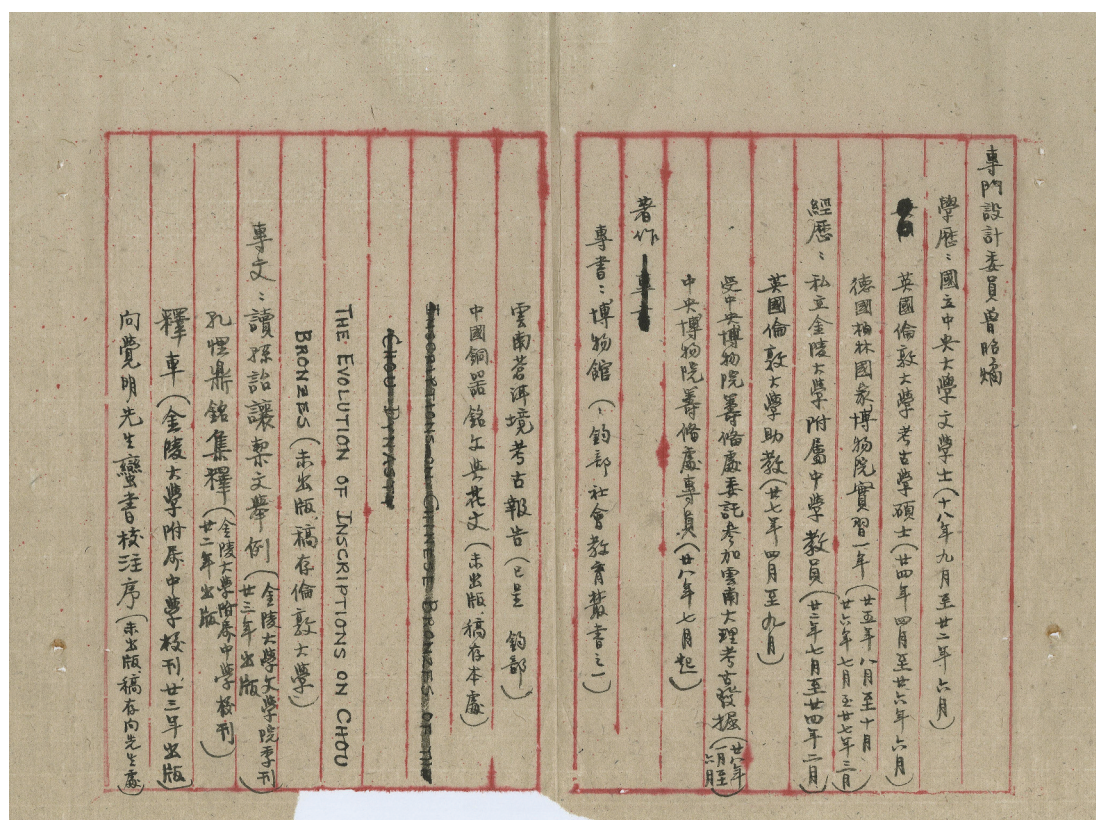 專門設計委員曾昭燏
學歷：國立中央大學文學士（十八年九月至廿二年六月）
英國倫敦大學考古學碩士（廿四年四月至廿六年六月）
德國柏林國家博物院實習一年（廿五年八月至十月 廿六年七月至廿七年三月）
經歷：私立金陵大學附屬中學教員（廿二年七月至廿四年二月）
英國倫敦大學助教（廿七年四月至九月）
受中央博物院籌備處委託參加雲南大理考古發掘（廿八年一月至六月）
中央博物院籌備處專員（廿八年七月起）
著作
專書：博物館（鈞部社會教育叢書之一）
雲南蒼洱境考古報告（已呈 鈞部）
中國銅器銘文與花文（未出版，稿存本處）
INSCRIPTIONS ON CHINESE BRONZES OF THE
CHOU DYNASTY
THE EVOLUTION OF INSCRIPTIONS ON CHOU
BRONZES（未出版，稿存倫敦大學）
專文：讀孫詒讓栔文舉例（金陵大學文學院季刊 廿三年出版）
孔悝鼎銘集釋（金陵大學附屬中學校刊 廿二年出版）
釋車（金陵大學附屬中學校刊，廿三年出版）
向覺明先生蠻書校注序（未出版，稿存向先生處）